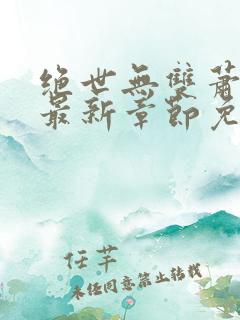 绝世无双萧
最新章节免
任芊
未经同意禁止转载